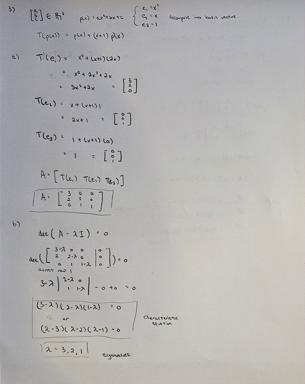 3) [a b c] ∈ ℝ³ p(x) = ax²+bx+c { e₁ = x²
e₂ = x
e₃ = 1
T(p(x)) = p(x) + (x+1) p'(x)
a) T(e₁) = x² + (x+1)(2x)
= x² + 2x² + 2x
= 3x² + 2x = [3 2 0]
T(e₂) = x + (x+1)1
= 2x + 1 = [0 2 1]
T(e₃) = 1 + (x+1)(0)
= 1 = [0 0 1]
A = [T(e₁) T(e₂) T(e₃)]
A = [3 0 0
2 2 0
0 1 1]
b) det(A - λI) = 0
det([3-λ 0 0 | 0
2 2-λ 0 | 0
0 1 1-λ | 0]) = 0
across row 1
3-λ |2-λ 0
1 1-λ| - 0 + 0 = 0
(3-λ)(2-λ)(1-λ) = 0
or
(λ-3)(λ-2)(λ-1) = 0
characteristic
equation
λ = 3, 2, 1 eigenvalues